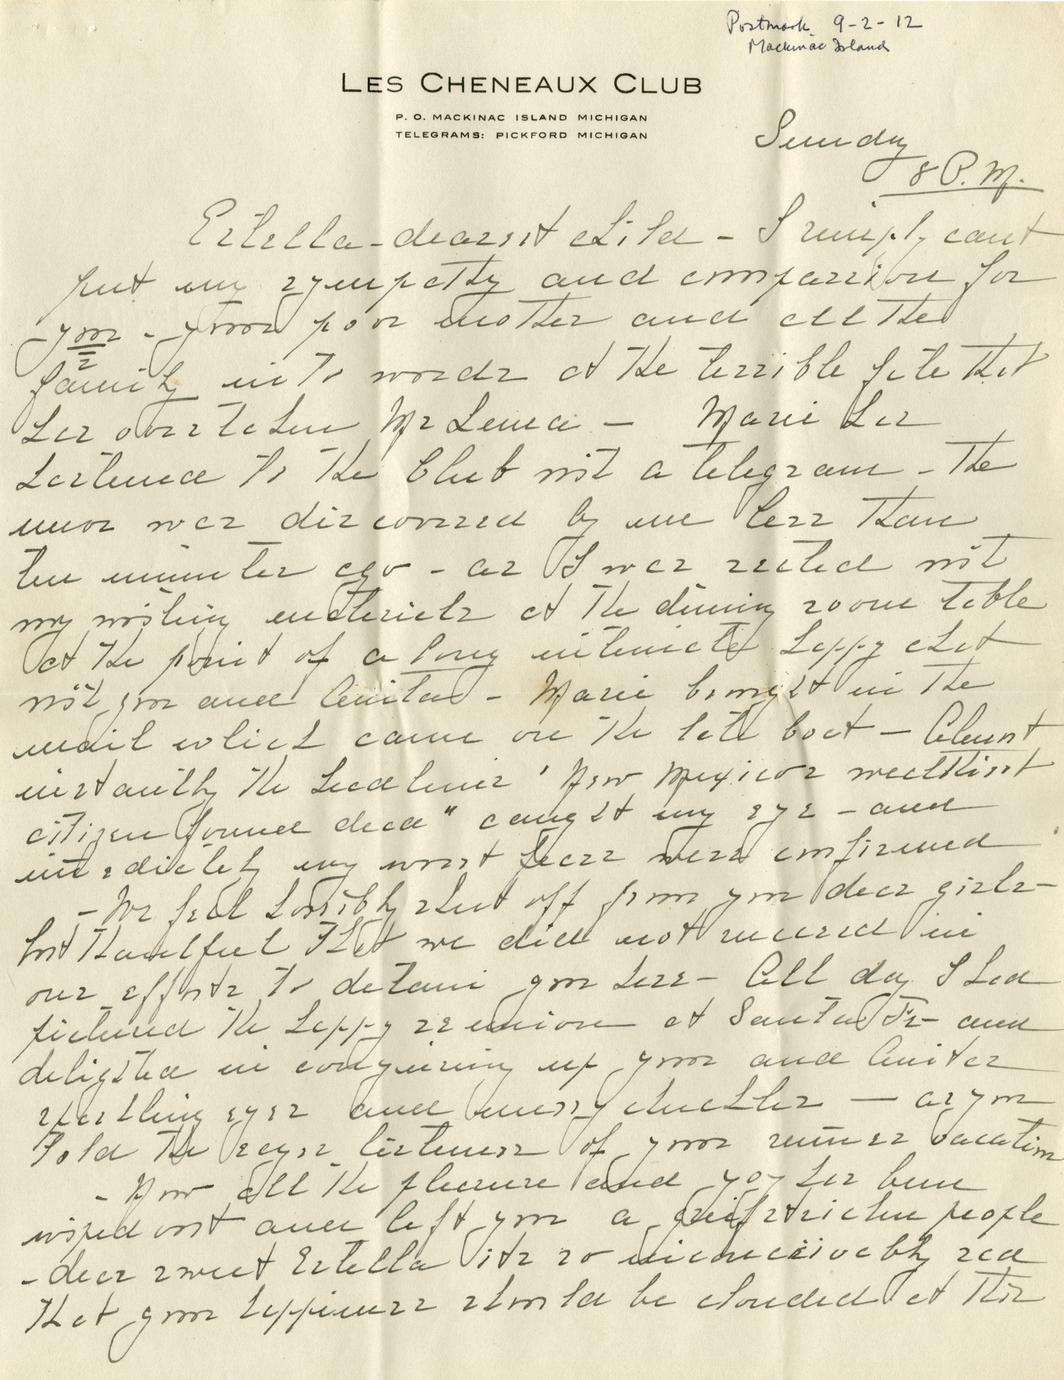 Postmark 9-2-12
Mackinac Island
LES CHENEAUX CLUB
P. O. MACKINAC ISLAND MICHIGAN
TELEGRAMS: PICKFORD MICHIGAN
Sunday
8 P.M.
Estella - dearest child - I simply cant
put my sympathy and compassion for
you - your poor mother and all the
family into words at the terrible fate that
has overtaken Mr Luna - Marie has
hastened to the Club with a telegram - the
news was discovered by me less than
ten minutes ago - as I was seated with
my writing materials at the dining room table
at the point of a long intimate happy chat
with you and Anita - Marie brought in the
mail which came on the late boat - Almost
instantly the head lines "New Mexico's wealthiest
citizen found dead" caught my eye - and
immediately my worst fears were confirmed
- We feel horribly shut off from you dear girls -
but thankful that we did not succeed in
our efforts to detain you here - All day I had
pictured the happy reunion at Santa Fe - and
delighted in conjuring up your and Anitas
sparkling eyes and merry chuckles - as you
told the eager listeners of your summer vacation
- Now all the pleasure and joy has been
wiped out and left you a grief stricken people
- dear sweet Estella its so inconceivably sad
that your happiness should be clouded at this